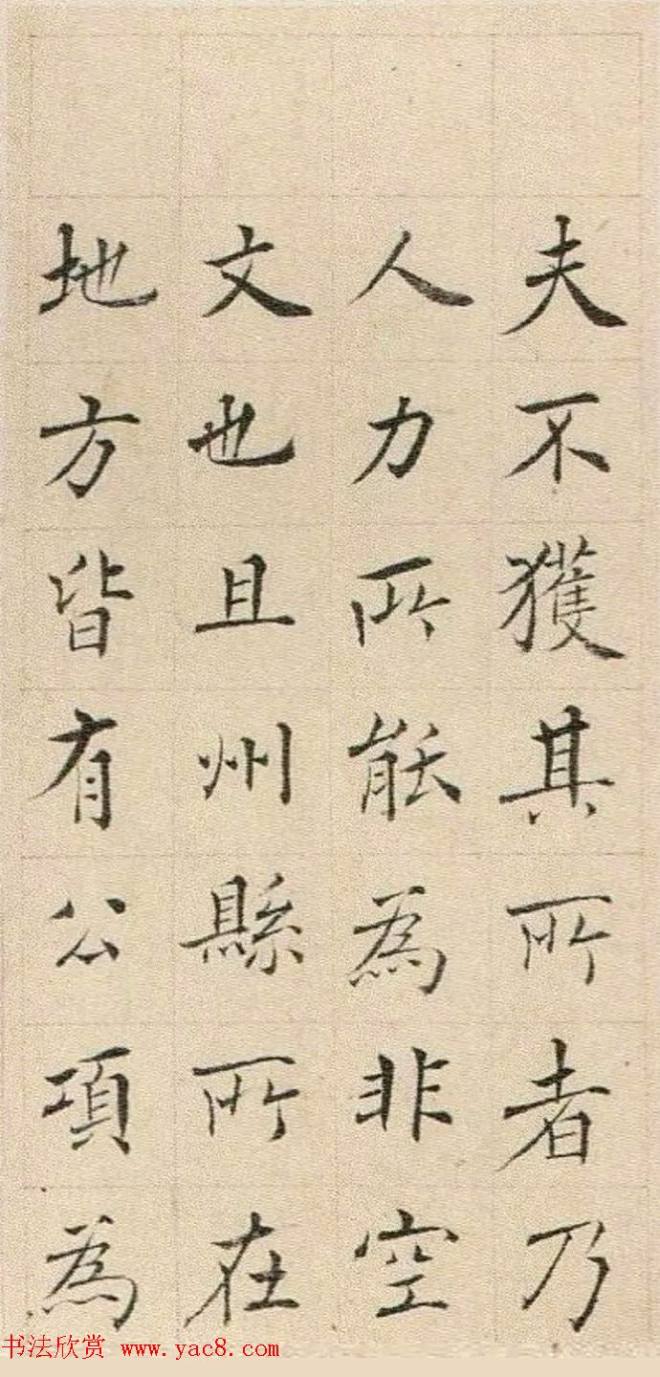 夫不獲其所者乃
人力所能為非空
文也且州縣所在
地方皆有公項為
书法欣赏 www.yac8.com